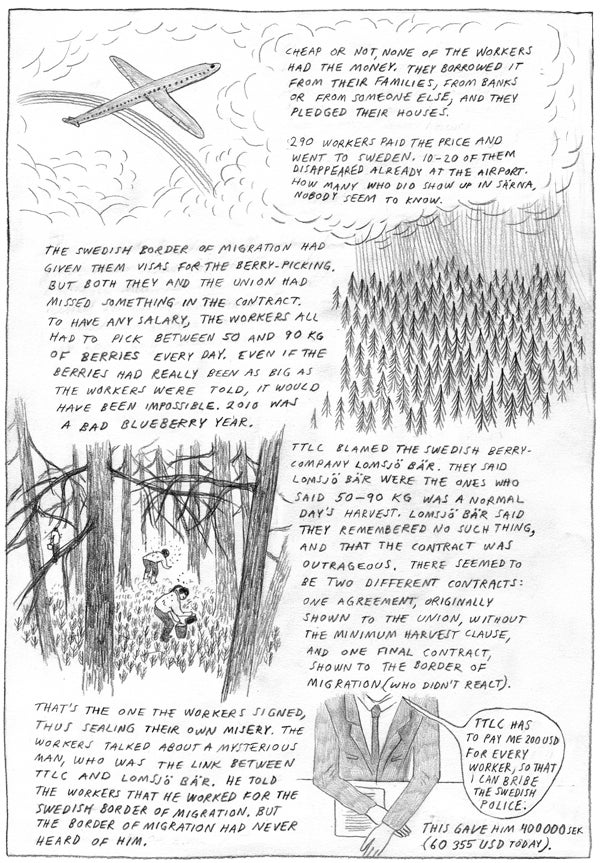 CHEAP OR NOT, NONE OF THE WORKERS
HAD THE MONEY. THEY BORROWED IT
FROM THEIR FAMILIES, FROM BANKS
OR FROM SOMEONE ELSE, AND THEY
PLEDGED THEIR HOUSES.
290 WORKERS PAID THE PRICE AND
WENT TO SWEDEN. 10-20 OF THEM
DISAPPEARED ALREADY AT THE AIRPORT.
HOW MANY WHO DID SHOW UP IN SÄRNA,
NOBODY SEEM TO KNOW.
THE SWEDISH BORDER OF MIGRATION HAD
GIVEN THEM VISAS FOR THE BERRY-PICKING.
BUT BOTH THEY AND THE UNION HAD
MISSED SOMETHING IN THE CONTRACT.
TO HAVE ANY SALARY, THE WORKERS ALL
HAD TO PICK BETWEEN 50 AND 90 KG
OF BERRIES EVERY DAY. EVEN IF THE
BERRIES HAD REALLY BEEN AS BIG AS
THE WORKERS WERE TOLD, IT WOULD
HAVE BEEN IMPOSSIBLE. 2010 WAS
A BAD BLUEBERRY YEAR.
TTLC BLAMED THE SWEDISH BERRY-
COMPANY LOMSJÖ BÄR. THEY SAID
LOMSJÖ BÄR WERE THE ONES WHO
SAID 50-90 KG WAS A NORMAL
DAY'S HARVEST. LOMSJÖ BÄR SAID
THEY REMEMBERED NO SUCH THING,
AND THAT THE CONTRACT WAS
OUTRAGEOUS. THERE SEEMED TO
BE TWO DIFFERENT CONTRACTS:
ONE AGREEMENT, ORIGINALLY
SHOWN TO THE UNION, WITHOUT
THE MINIMUM HARVEST CLAUSE,
AND ONE FINAL CONTRACT,
SHOWN TO THE BORDER OF
MIGRATION (WHO DIDN'T REACT).
THAT'S THE ONE THE WORKERS SIGNED,
THUS SEALING THEIR OWN MISERY. THE
WORKERS TALKED ABOUT A MYSTERIOUS
MAN, WHO WAS THE LINK BETWEEN
TTLC AND LOMSJÖ BÄR. HE TOLD
THE WORKERS THAT HE WORKED FOR THE
SWEDISH BORDER OF MIGRATION. BUT
THE BORDER OF MIGRATION HAD NEVER
HEARD OF HIM.
TTLC HAS
TO PAY ME 200 USD
FOR EVERY
WORKER, SO THAT
I CAN BRIBE
THE SWEDISH
POLICE.
THIS GAVE HIM 400 000 SEK
(60 355 USD TODAY).